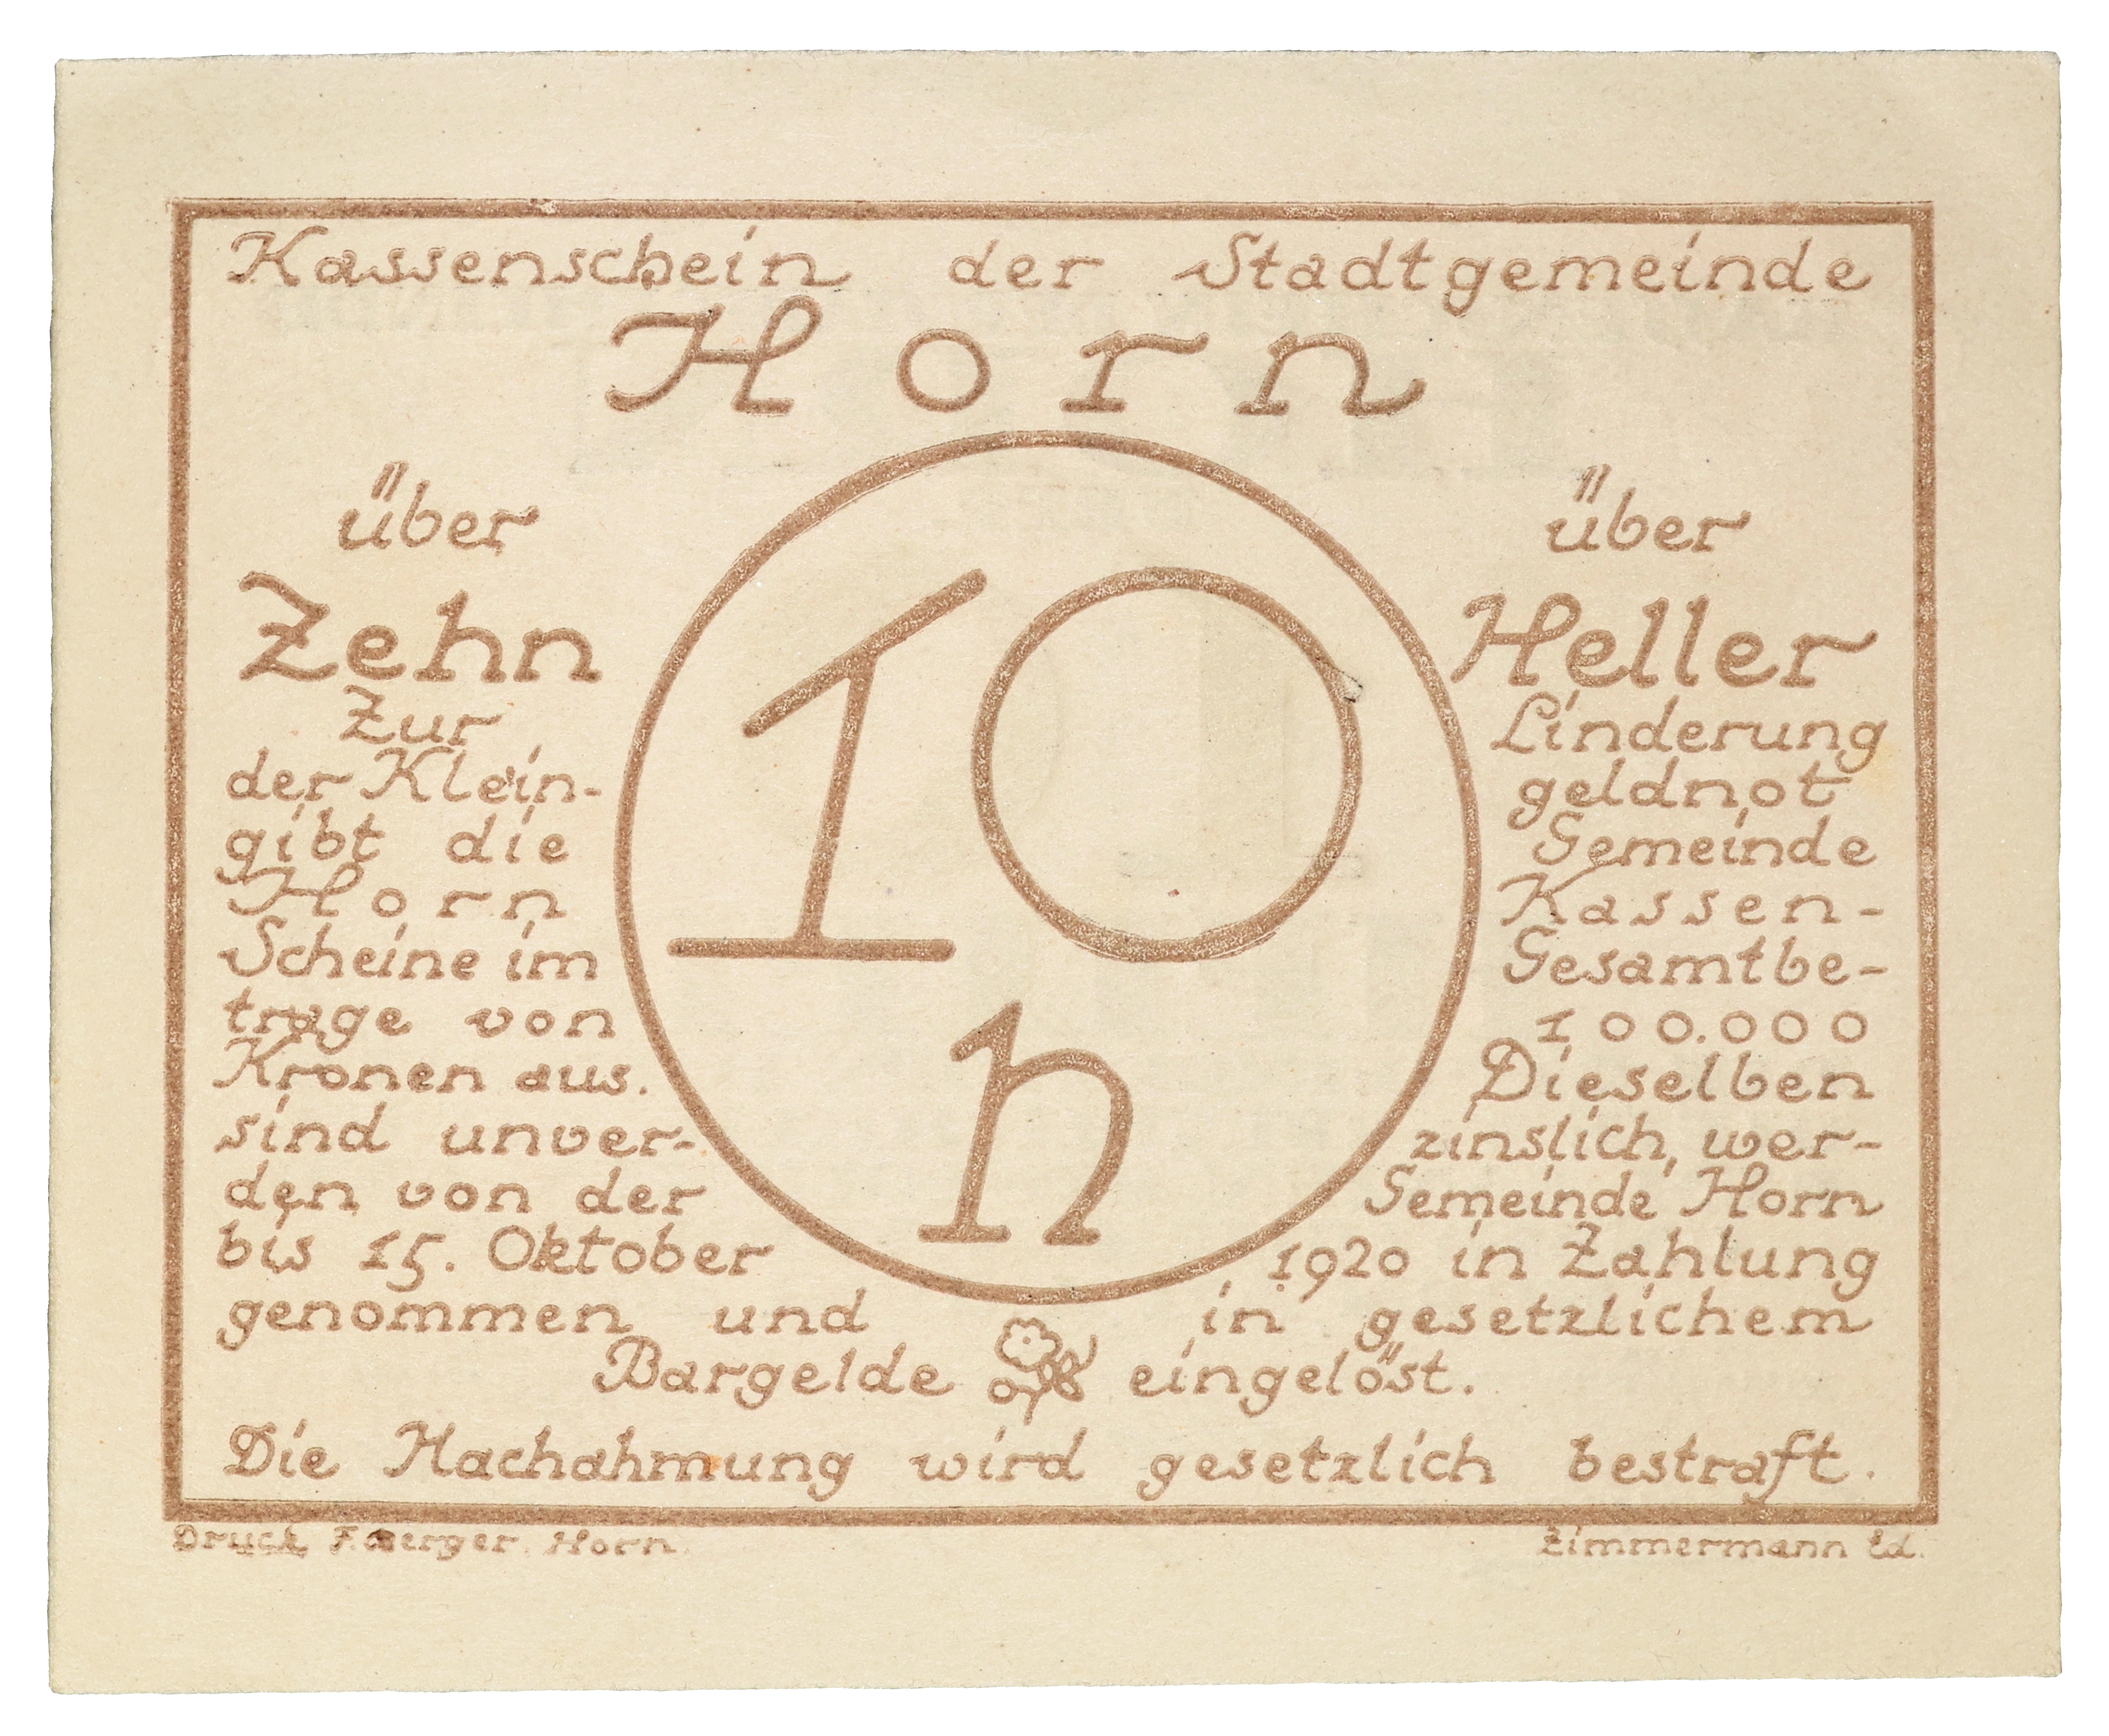 Kassenschein der Stadtgemeinde
Horn
über über
Zehn Heller
10
h
Zur Linderung
der Klein- geldnot
gibt die Gemeinde
Horn Kassen-
Scheine im Gesamtbe-
trage von 100.000
Kronen aus. Dieselben
sind unver- zinslich, wer-
den von der Gemeinde Horn
bis 15. Oktober 1920 in Zahlung
genommen und in gesetzlichem
Bargelde eingelöst.
Die Nachahmung wird gesetzlich bestraft.
Druck F. Berger. Horn.
Zimmermann Ed.